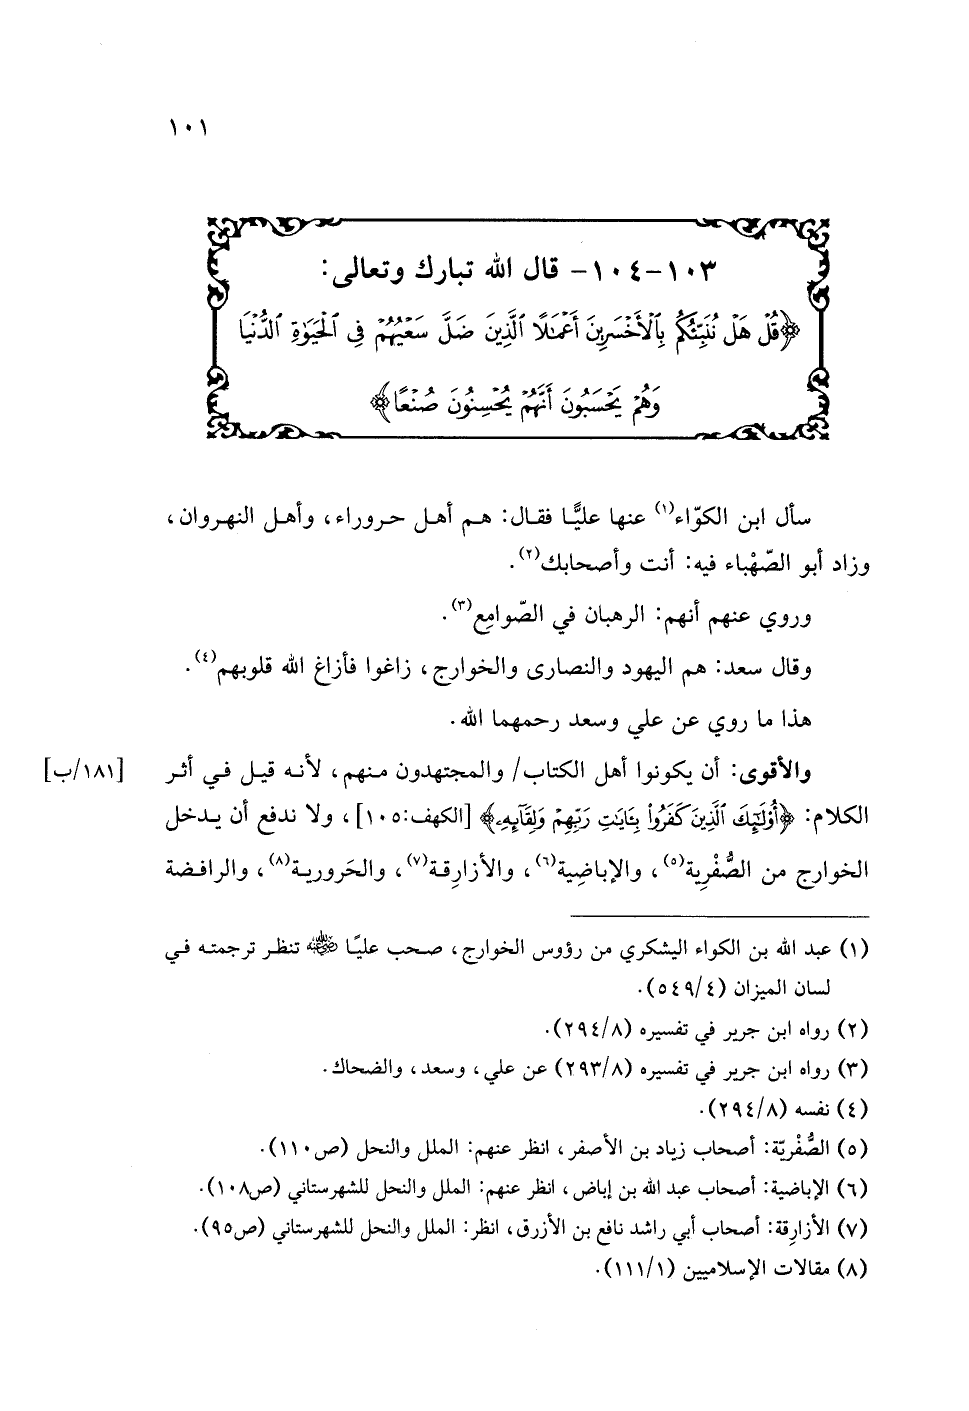 ١٠١
١٠٣-١٠٤- قال الله تبارك وتعالى:
﴿قُلْ هَلْ نُنَبِّئُكُم بِالْأَخْسَرِينَ أَعْمَٰلًا ٱلَّذِينَ ضَلَّ سَعْيُهُمْ فِى ٱلْحَيَوٰةِ ٱلدُّنْيَا
وَهُمْ يَحْسَبُونَ أَنَّهُمْ يُحْسِنُونَ صُنْعًا﴾
سأل ابن الكوّاء(١) عنها عليًّا فقال: هم أهل حروراء، وأهل النهروان،
وزاد أبو الصّهْباء فيه: أنت وأصحابك(٢).
وروي عنهم أنهم: الرهبان في الصّوامِع(٣).
وقال سعد: هم اليهود والنصارى والخوارج، زاغوا فأزاغ الله قلوبهم(٤).
هذا ما روي عن علي وسعد رحمهما الله.
والأقوى: أن يكونوا أهل الكتاب/ والمجتهدون منهم، لأنه قيل في أثر [١٨١/ب]
الكلام: ﴿أُوْلَٰٓئِكَ ٱلَّذِينَ كَفَرُواْ بِـَٔايَٰتِ رَبِّهِمْ وَلِقَآئِهِۦ﴾ [الكهف:١٠٥]، ولا ندفع أن يدخل
الخوارج من الصُّفْرِية(٥)، والإباضِية(٦)، والأزارِقة(٧)، والحَرورية(٨)، والرافضة
(١) عبد الله بن الكواء اليشكري من رؤوس الخوارج، صحب عليًا ﵁ تنظر ترجمته في
لسان الميزان (٥٤٩/٤).
(٢) رواه ابن جرير في تفسيره (٢٩٤/٨).
(٣) رواه ابن جرير في تفسيره (٢٩٣/٨) عن علي، وسعد، والضحاك.
(٤) نفسه (٢٩٤/٨).
(٥) الصُّفْريّة: أصحاب زياد بن الأصفر، انظر عنهم: الملل والنحل (ص١١٠).
(٦) الإباضية: أصحاب عبد الله بن إباض، انظر عنهم: الملل والنحل للشهرستاني (ص١٠٨).
(٧) الأزارِقة: أصحاب أبي راشد نافع بن الأزرق، انظر: الملل والنحل للشهرستاني (ص٩٥).
(٨) مقالات الإسلاميين (١١١/١).